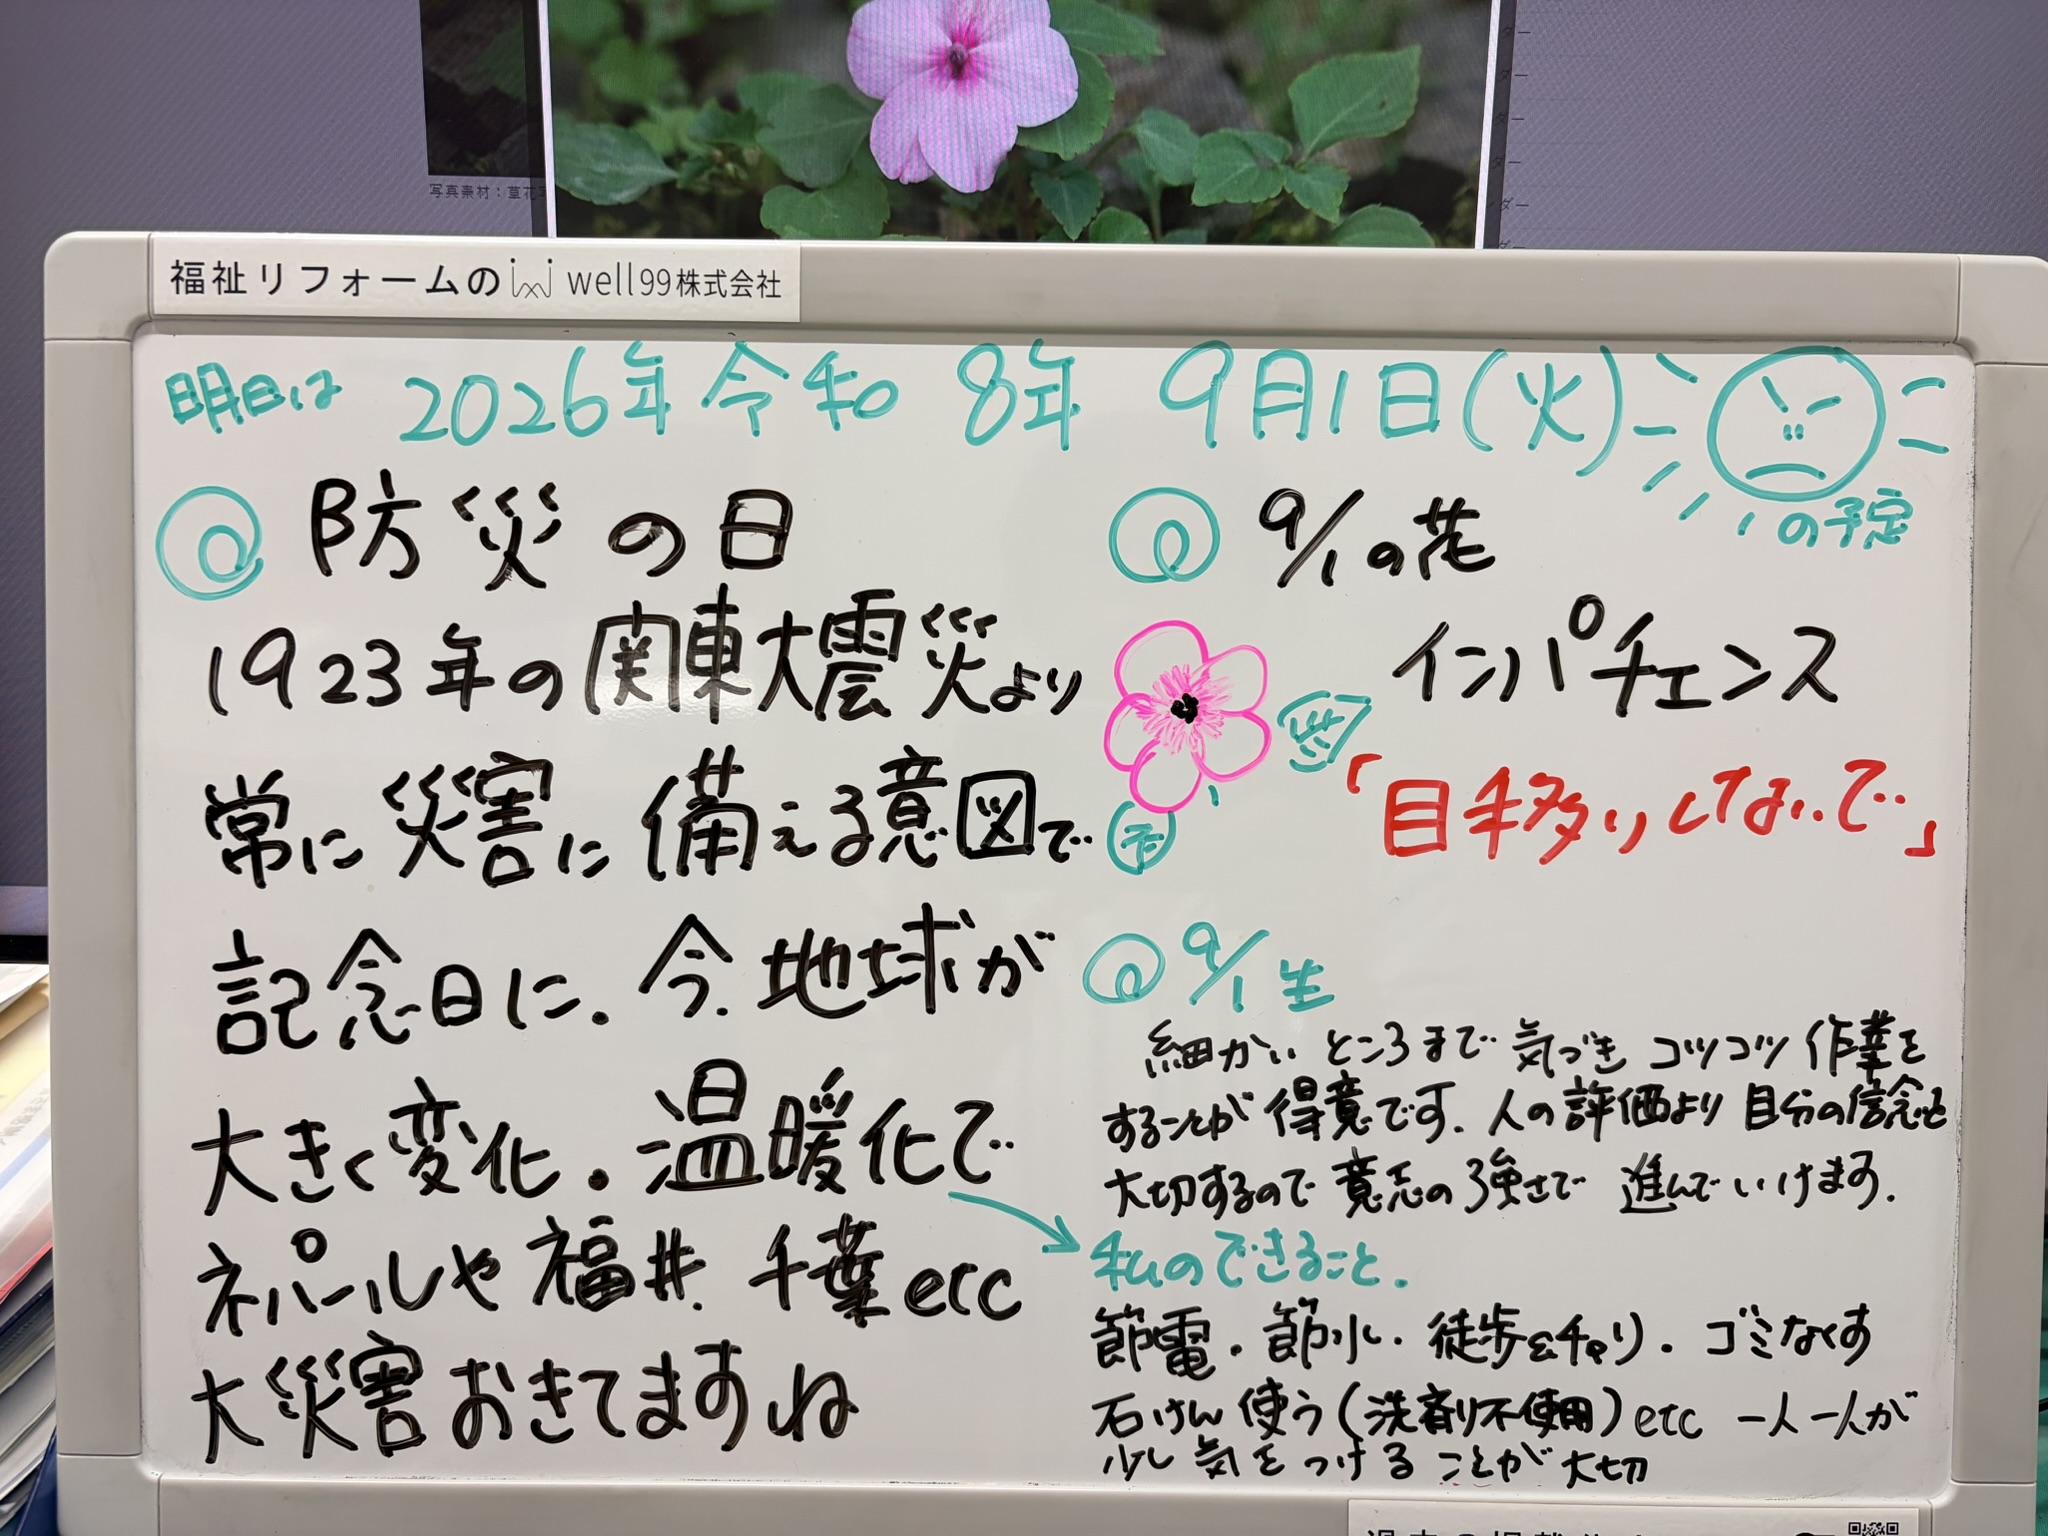 写真素材：草花
福祉リフォームの well99株式会社
明日は 2026年 令和 8年 9月1日(火)
の予定
防災の日
1923年の関東大震災より
常に災害に備える意図で
記念日に.今.地球が
大きく変化.温暖化で
ネパールや福井.千葉etc
大災害おきてますね
9/1の花
インパチェンス
「目移りしないで」
9/1生
細かいところまで気づきコツコツ作業を
することが得意です.人の評価より自分の信念を
大切するので意志の強さで進んでいけます.
私のできること.
節電.節水.徒歩&チャリ.ゴミなくす
石けん使う(洗剤不使用)etc 一人一人が
少し気をつけることが大切